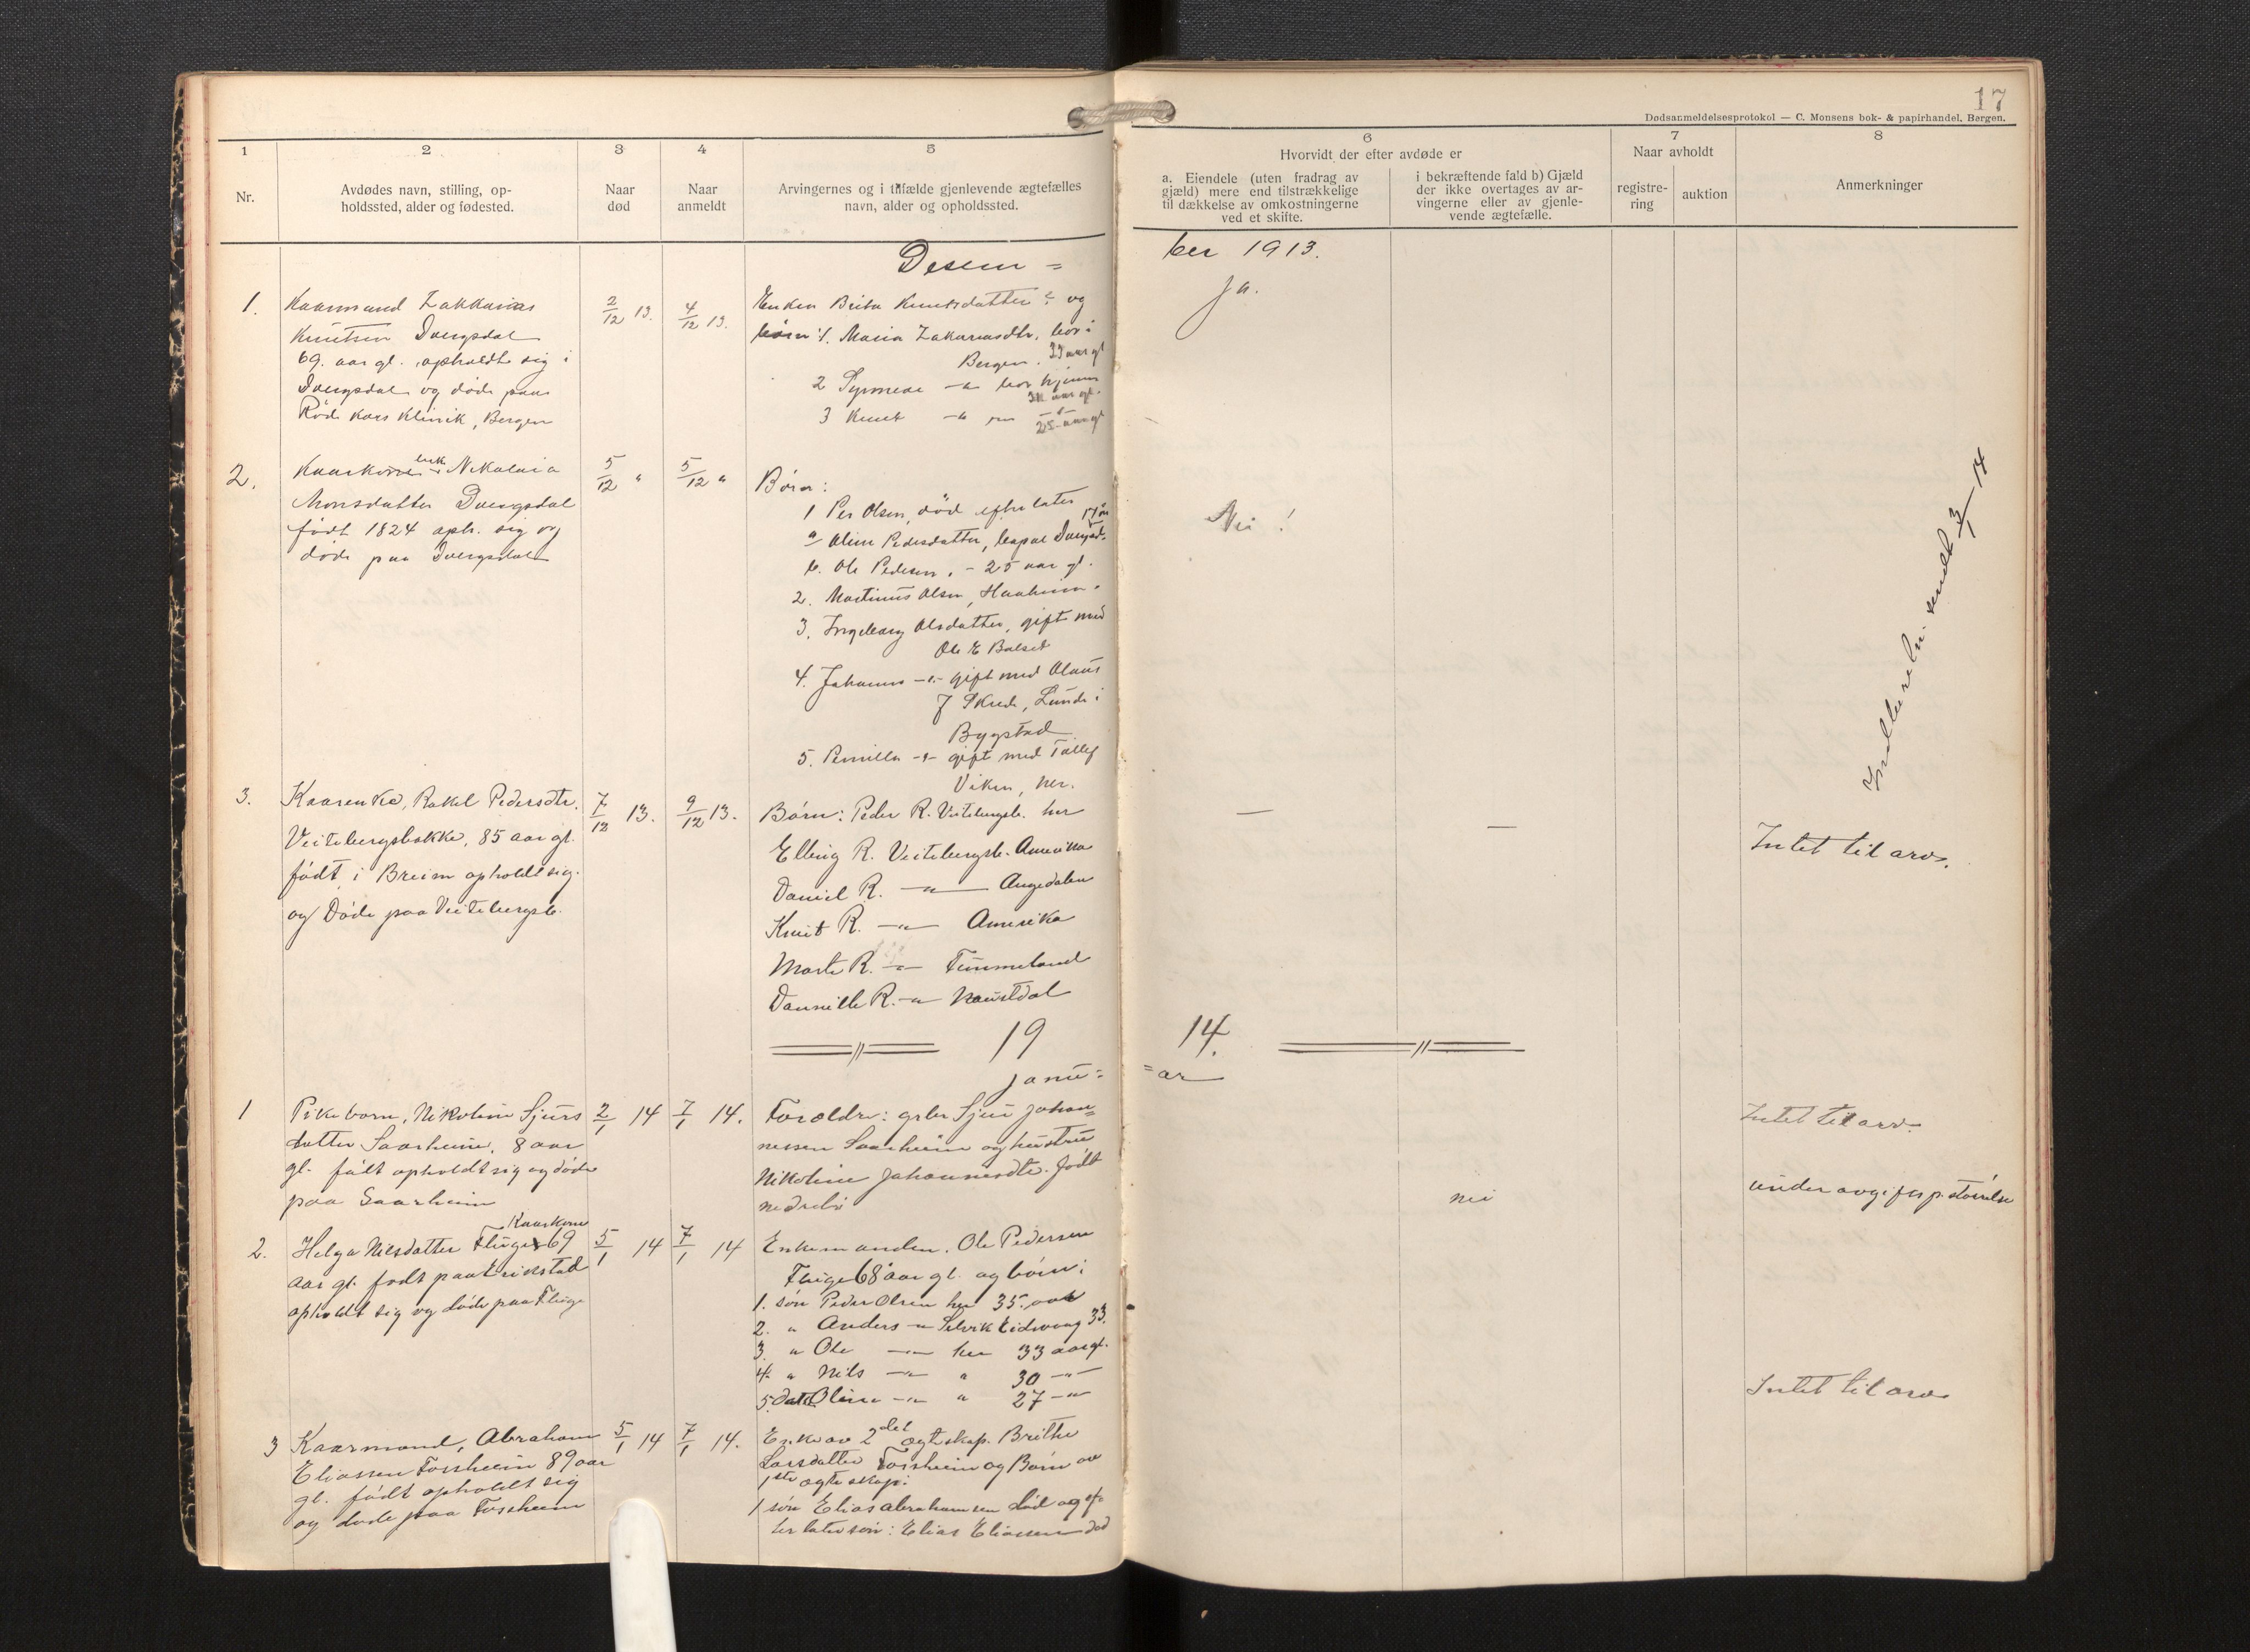 17
Dødsanmeldelsesprotokol — C. Monsens bok- & papirhandel, Bergen.
1
Nr.
2
Avdødes navn, stilling, op-
holdssted, alder og fødested.
3
Naar
død
4
Naar
anmeldt
5
Arvingernes og i tilfælde gjenlevende ægtefælles
navn, alder og opholdssted.
6
Hvorvidt der efter avdøde er
a. Eiendele (uten fradrag av
gjæld) mere end tilstrækkelige
til dækkelse av omkostningerne
ved et skifte.
i bekræftende fald b) Gjæld
der ikke overtages av ar-
vingerne eller av gjenle-
vende ægtefælle.
7
Naar avholdt
registre-
ring
auktion
8
Anmerkninger
Desem =
ber 1913.
1.
Kaarmand Zakkarias
Knutsen Dvergsdal
69. aar gl. opholdt sig i
Dvergsdal og døde paa
Røde kors klinik, Bergen
2/12 13.
4/12 13.
Enken Brita Knutsdatter og
børn 1. Maria Zakariasdtr. bor i
Bergen. 33 aar gl
2 Synneve -"- bor hjemme
aar gl.
3 Knut -"-
25 aar gl
Ja.
2.
Kaarkone enke Nikolaia
Monsdatter Dvergsdal
født 1824 oph. sig og
døde paa Dvergsdal
5/12 "
5/12 "
Børn:
1 Per Olsen, død efterlater
a Oline Pedersdatter,
b. Ole Pedersen, - 25 aar gl.
2. Martinus Olsen,
3. Ingeborg Olsdatter, gift med
Ole E Bolset
4. Johanne -"- gift med Olaus
J Skrede, Lunde i
Bygstad
5. Pernilla -"- gift med Tollef
Viken, her.
Nei!
sendt 3/1 14
3.
Kaarenke, Rakel Pedersdtr.
Veitebergsbakke, 85 aar gl.
født i Breim opholdt sig
og døde paa Veitebergsb.
7/12 13.
9/12 13.
Børn: Peder R. Veitebergsb. her
Elling R. Veitebergsb. Amerika
Daniel R. —"— Angedalen
Knut R. —"— Amerika
Marte R. —"— Timmeland
Dannille R. —"— Naustdal
—
—
Intet til arv.
19
14.
Janu=
=ar
1
Pikebarn, Nikoline Sjurs
datter Saarheim, 8 aar
gl. født opholdt sig og døde
paa Saarheim
2/1 14
7/1 14.
Forældre: grbr Sjur Johan=
nessen Saarheim og hustru
Nikoline Johannesdtr. født
nedrebø
Intet til arv.
2.
Kaarkone
Helga Nilsdatter Fluge 69
aar gl. født paa Erikstad
opholdt sig og døde paa Fluge
5/1 14
7/1 14
Enkemanden. Ole Pedersen
Fluge 68 aar gl. og børn:
1. søn Peder Olsen her 35. aar
2. " Anders -"- Selvik Eidsvaag 33.
3. " Ole —"— her 33 aar gl.
4. " Nils —"— " 30 —"—
5. datr Oline —"— " 27 —"
nei
under avgifsp. størrelse
3
Kaarmand, Abraham
Eliassen Forsheim 89 aar
gl. født opholdt sig
og døde paa Forsheim
5/1 14
7/1 14.
Enke av 2det egteskap. Brithe
Larsdatter Forsheim og Børn av
1ste egteskap:
1 søn Elias Abrahamsen død og ef=
terlater søn: Elias Eliassen død
Intet til arv